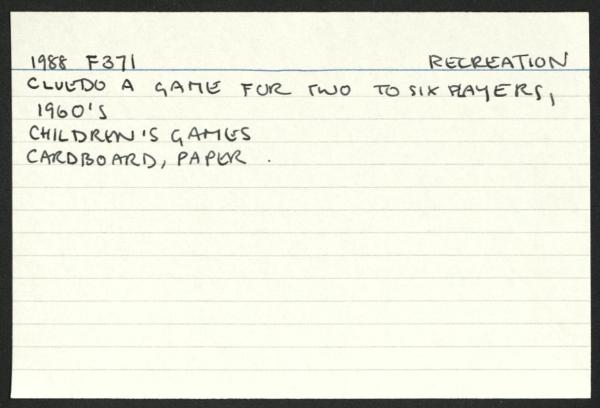 1988 F371 RECREATION
CLUEDO A GAME FOR TWO TO SIX PLAYERS,
1960'S
CHILDREN'S GAMES
CARDBOARD, PAPER .